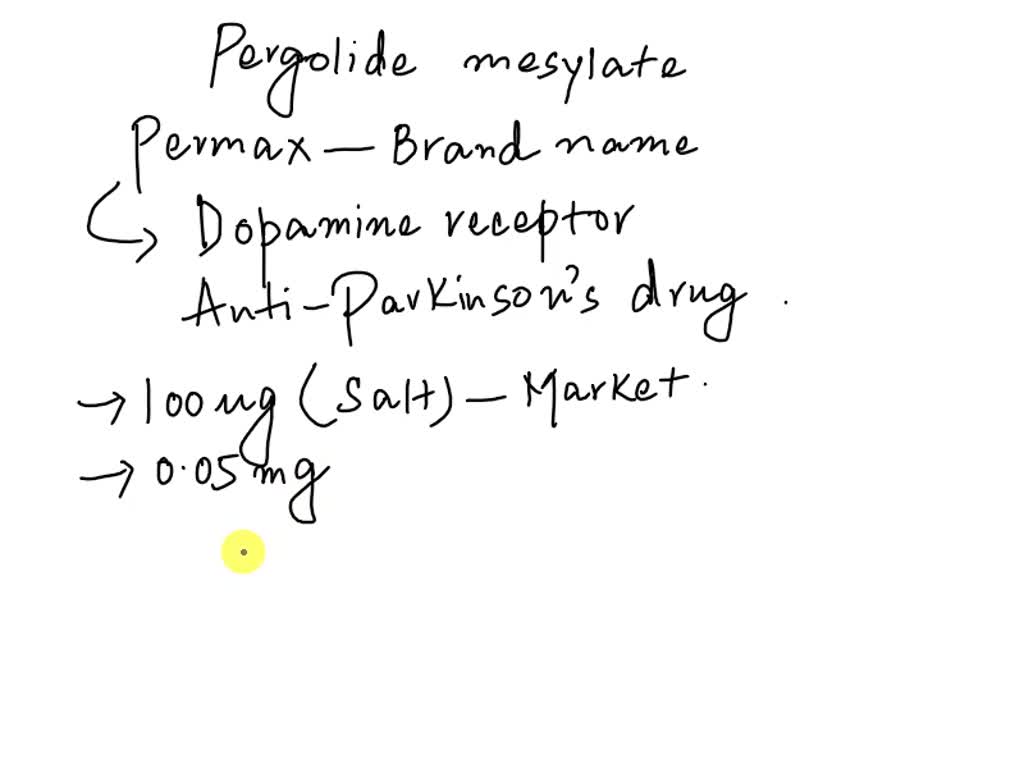 Pergolide mesylate
Permax — Brand name
→ Dopamine receptor
Anti-Parkinson's drug.
→ 100 ug (Salt) — Market.
→ 0.05 mg